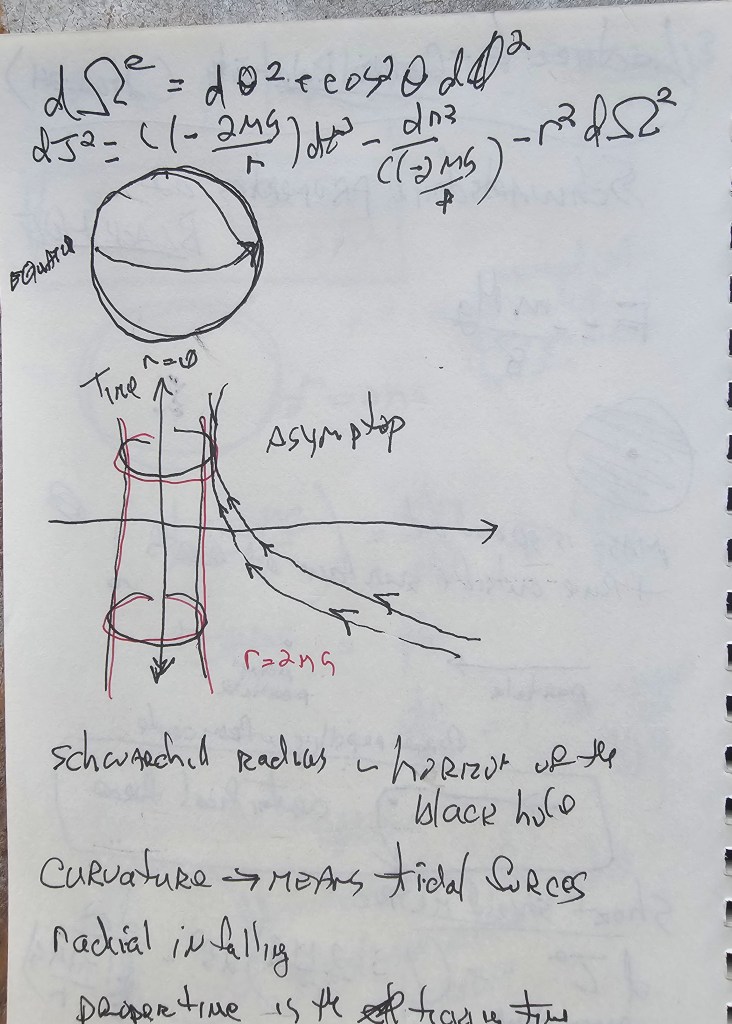 dΩ² = dθ² + cos²θ dΦ²
dJ² = (1 - 2MG/r) dt² - dr²/(1 - 2MG/r) - r² dΩ²
EQUATOR
r=0
Time
Asymptop
r=2MG
Schwarchild Radius horizon of the
black hole
CURVATURE → MEANS tidal FORCES
radial infalling
proper time is the